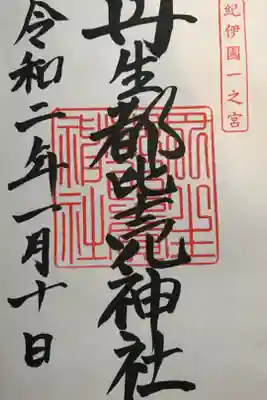 紀伊國一之宮
丹生都比売神社
令和二年一月十日